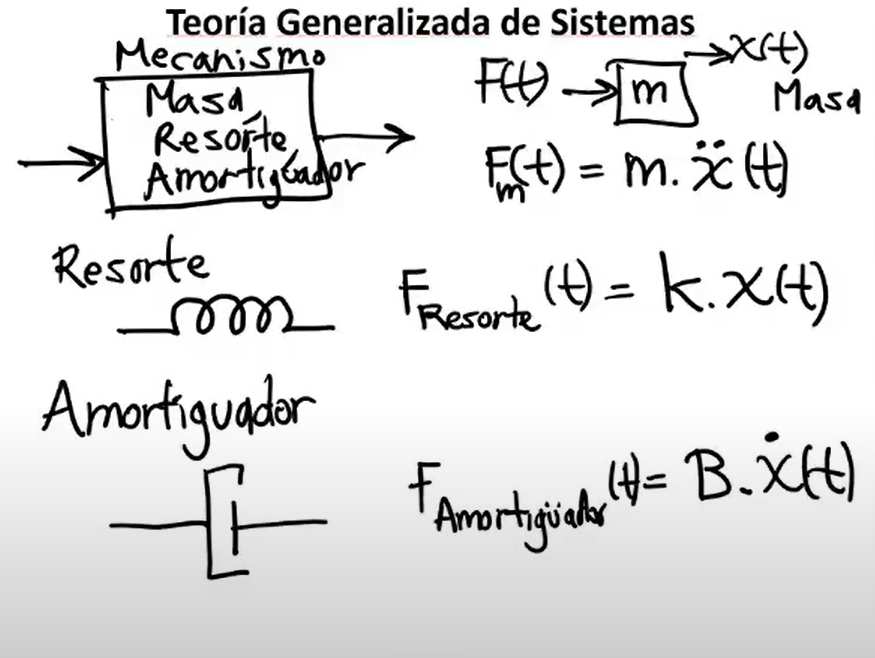 Teoría Generalizada de Sistemas
Mecanismo
Masa,
Resorte,
Amortiguador
F(t) → m → x(t)
Masa
Fm(t) = m. ẍ(t)
Resorte
F Resorte (t) = k. x(t)
Amortiguador
F Amortigüador (t) = B. ẋ(t)